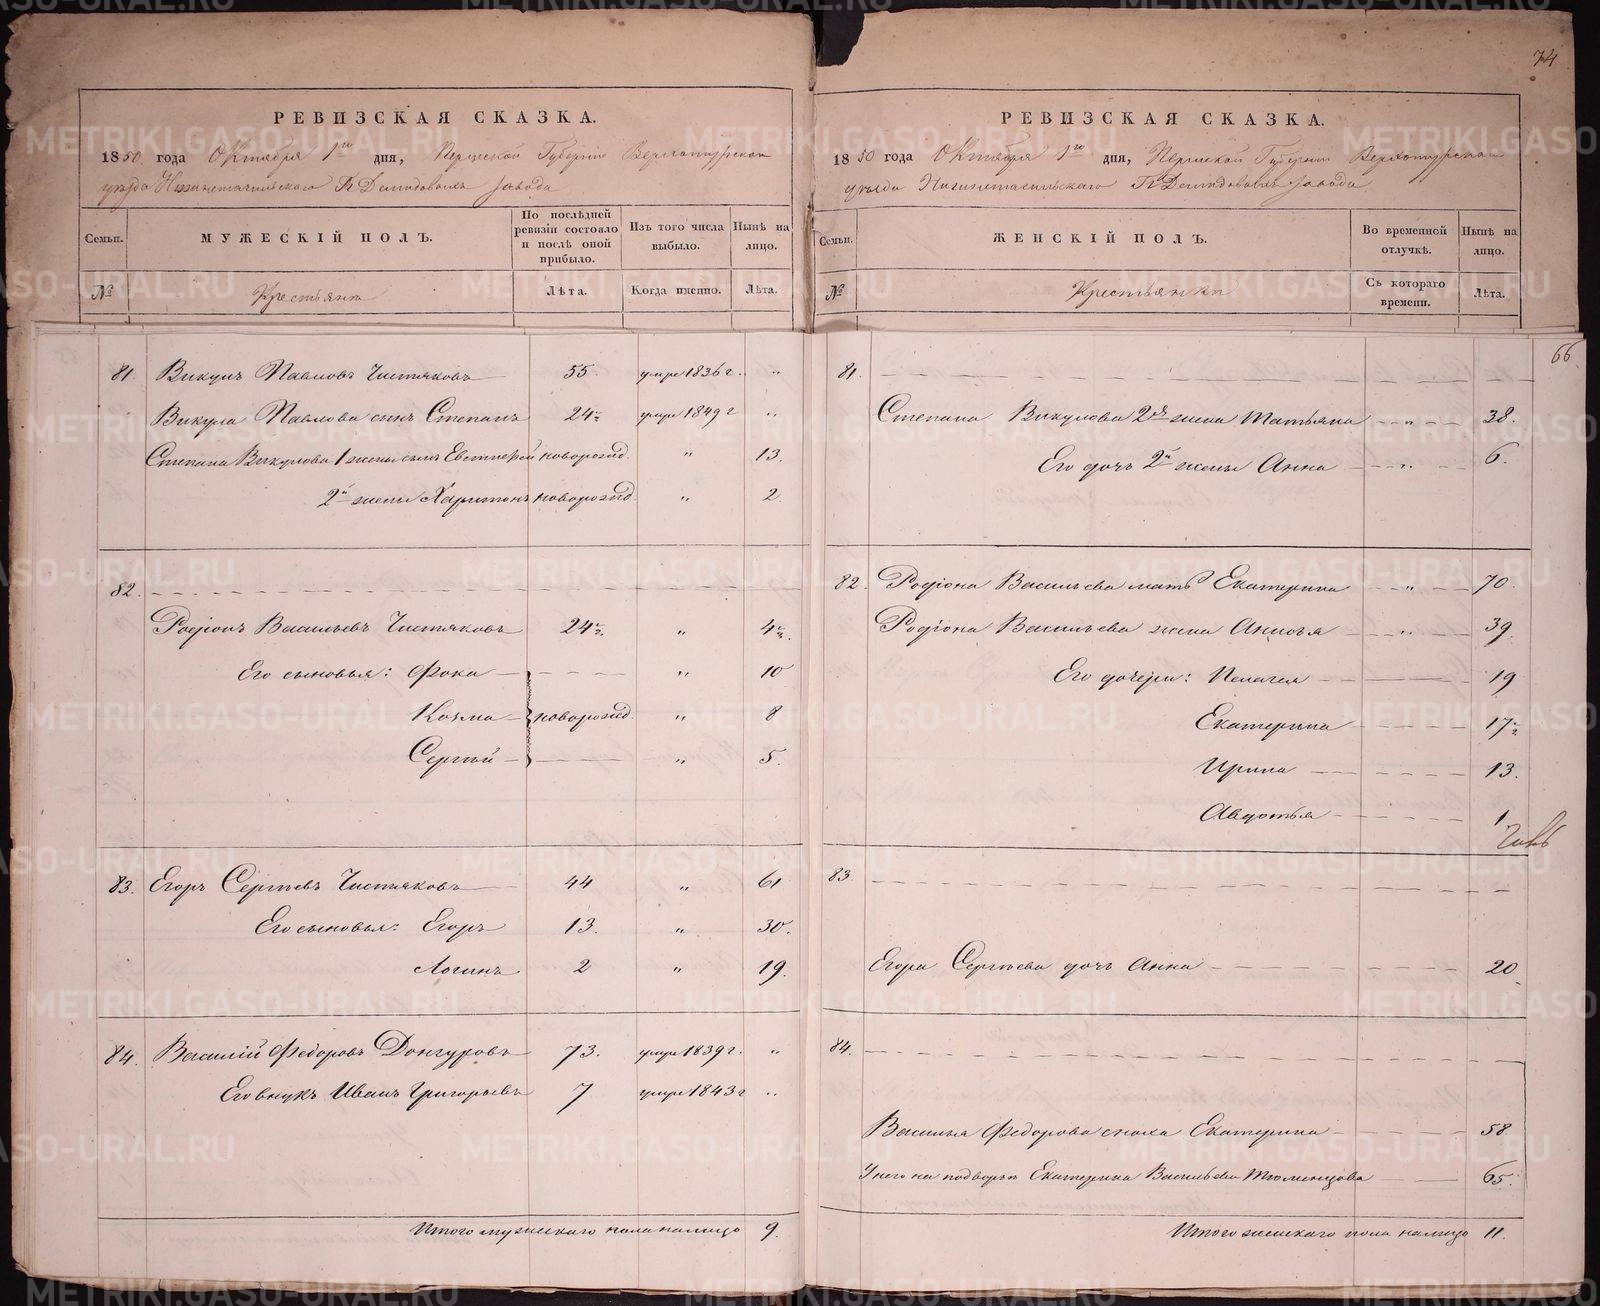 74
РЕВИЗСКАЯ СКАЗКА.
1850 года Октября 1го дня, Пермской Губерніи Верхотурскаго
уѣзда Нижнетагильскаго Гг Демидовыхъ завода
Семьи.
МУЖЕСКІЙ ПОЛЪ.
По послѣдней ревизіи состояло и послѣ оной прибыло.
Изъ того числа выбыло.
Нынѣ на лицо.
№
Крестьяне
Лѣта.
Когда именно.
Лѣта.
81 Викулъ Павловъ Чистяковъ 55. умре 1836 г. "
Викула Павлова сынъ Степанъ 24½ умре 1849 г "
Степана Викулова 1 жены сынъ Евстигней новорожд. " 13.
2й жены Харитонъ новорожд. " 2.
82.
Родіонъ Васильевъ Чистяковъ 24½. " 4½.
Его сыновья: Фока " 10
Козма новорожд. " 8
Сергѣй " 5.
83. Егоръ Сергѣевъ Чистяковъ 44 " 61
Его сыновья: Егоръ 13. " 30.
Логинъ 2 " 19.
84. Василій Федоровъ Донгуровъ 73. умре 1839 г. "
Его внукъ Иванъ Григорьевъ 7 умре 1843 г "
Итого мужескаго пола налицо 9.
РЕВИЗСКАЯ СКАЗКА.
1850 года Октября 1го дня, Пермской Губерніи Верхотурскаго
уѣзда Нижнетагильскаго Гг Демидовыхъ завода
Семьи.
ЖЕНСКІЙ ПОЛЪ.
Во временной отлучкѣ.
Нынѣ на лицо.
№
Крестьянки
Съ котораго времени.
Лѣта.
66
81.
Степана Викулова 2я жена Татьяна " 38.
Его дочь 2й жены Анна " 6.
82. Родіона Васильева мать Екатерина " 70.
Родіона Васильева жена Анисья " 39.
Его дочери: Пелагея 19
Екатерина 17½
Ирина 13.
Авдотья 1
83.
Егора Сергѣева дочь Анна 20
84.
Василья Федорова сноха Екатерина 58.
У него на подворьѣ Екатерина Васильева Тюменцова 65.
Итого женскаго пола налицо 11.
METRIKI.GASO-URAL.RU